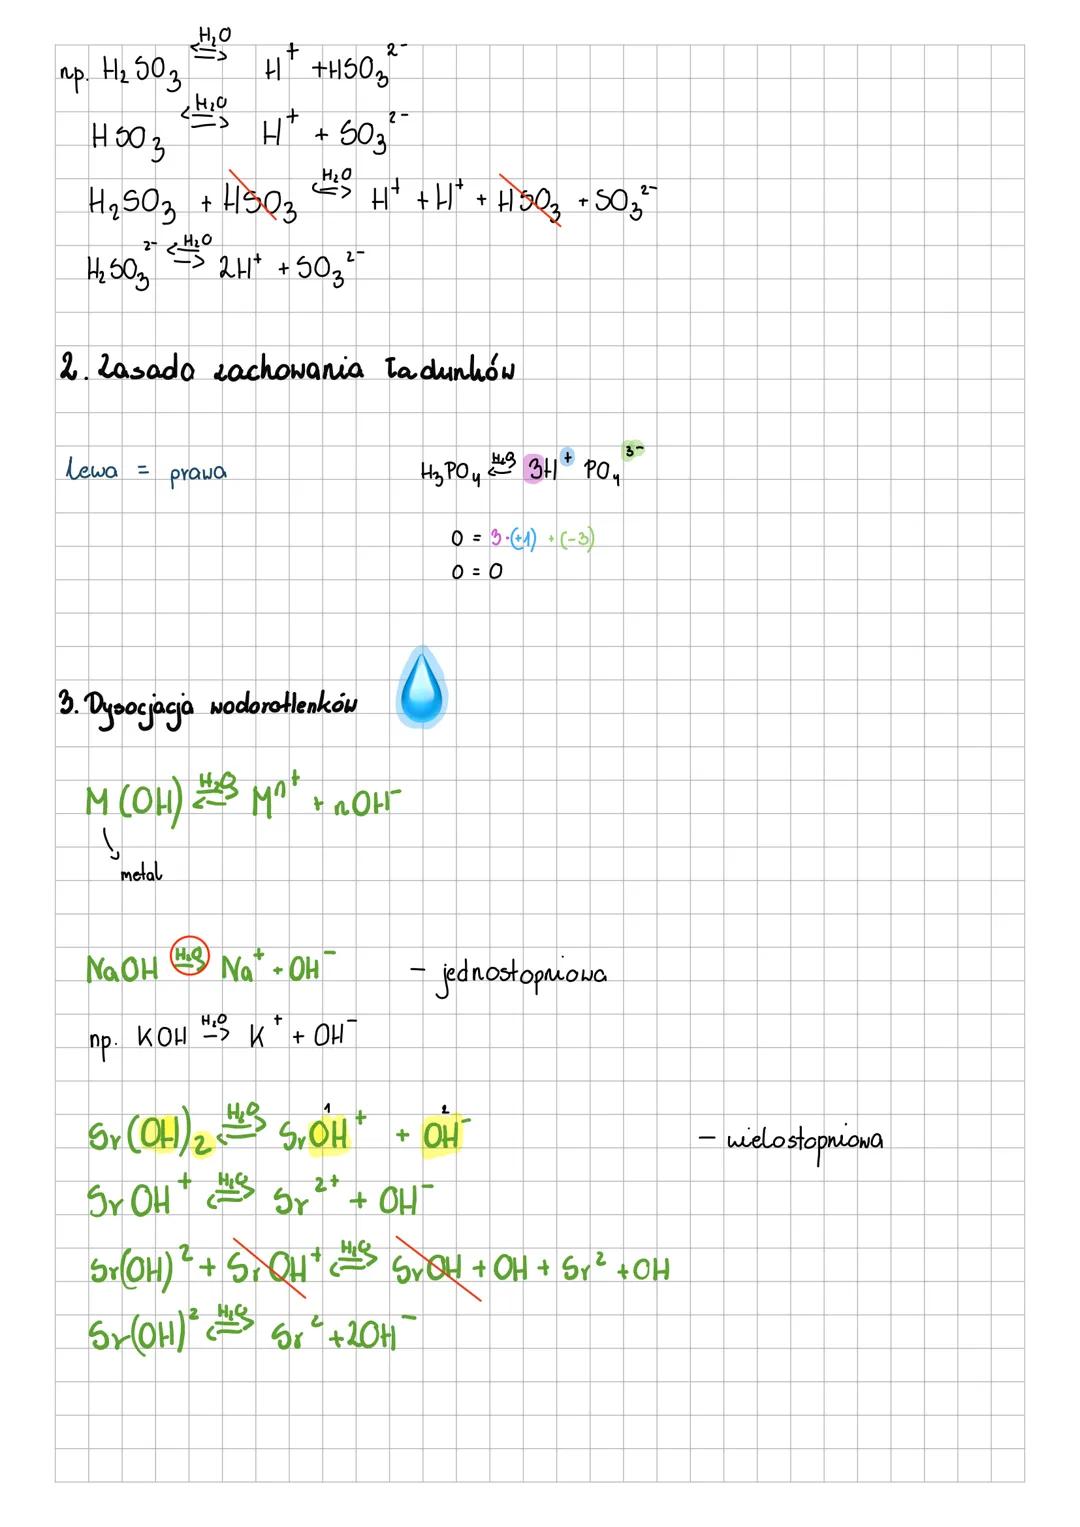 np. H₂SO₃ ⇌ H₂O H⁺ + HSO₃²⁻
HSO₃ ⇌ H₂O H⁺ + SO₃²⁻
H₂SO₃ + HSO₃ ⇌ H₂O H⁺ + H⁺ + HSO₃ + SO₃²⁻
H₂SO₃²⁻ ⇌ H₂O 2H⁺ + SO₃²⁻
2. Zasada zachowania ładunków
lewa = prawa
H₃PO₄ ⇌ H₂O 3H⁺ PO₄³⁻
0 = 3·(+1) + (-3)
0 = 0
3. Dysocjacja wodorotlenków
M(OH) ⇌ H₂O Mⁿ⁺ + nOH⁻
metal
NaOH → H₂O Na⁺ + OH⁻ - jednostopniowa
np. KOH → H₂O K⁺ + OH⁻
1 2
Sr(OH)₂ ⇌ H₂O SrOH⁺ + OH⁻ - wielostopniowa
SrOH⁺ ⇌ H₂O Sr²⁺ + OH⁻
Sr(OH)² + SrOH⁺ ⇌ H₂O SrOH + OH + Sr² + OH
Sr(OH)² ⇌ H₂O Sr² + 2OH⁻